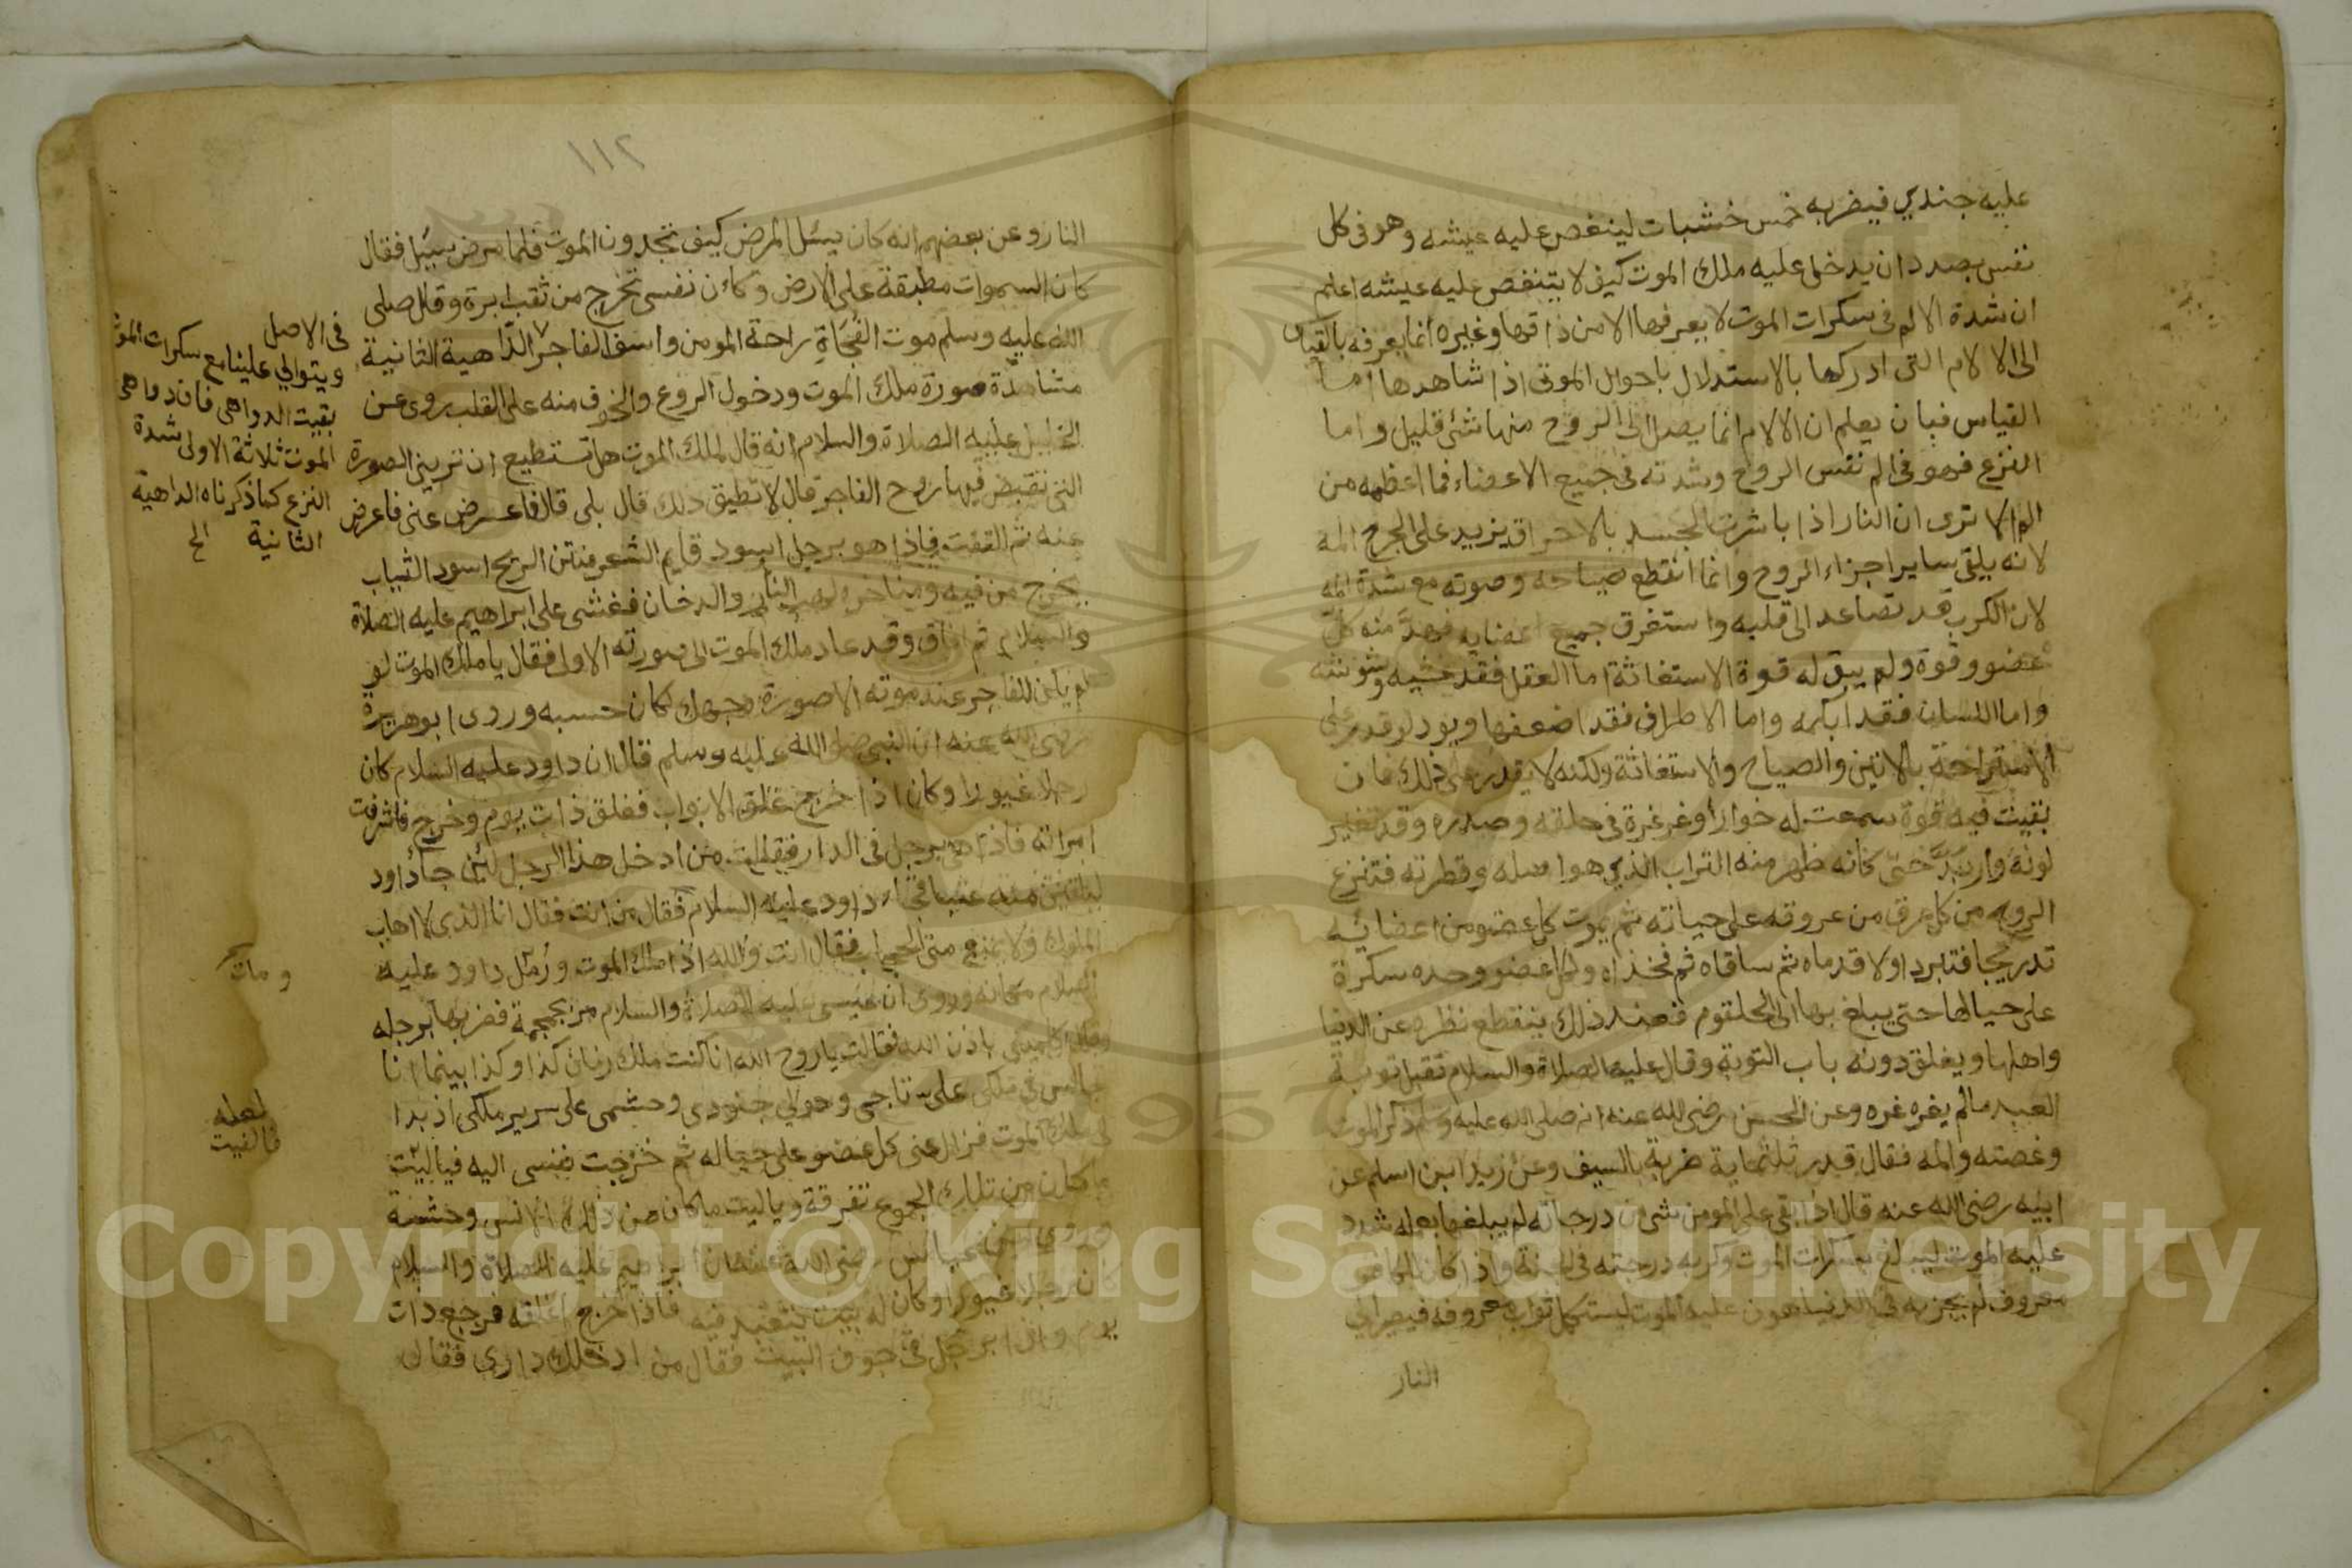 عليه جندي فيضربه خمس خشبات لينغص عليه عيشه وهو فى كل
نفس بصدد ان يدخل عليه ملك الموت كيف لا يتنغص عليه عيشه اعلم
ان شدة الالم فى سكرات الموت لا يعرفها الا من ذاقها وغيره انما يعرفه بالقياس
الى الالام التى ادركها بالاستدلال باحوال الموتى اذا شاهدها اما
القياس فبان يعلم ان الالام انما يصل الى الروح منها شئ قليل واما
النزع فهو فى الم نفس الروح وشدته فى جميع الاعضاء فما اعظمه من
الم الا ترى ان النار اذا باشرت الجسد بالاحراق يزيد على الجرح المه
لانه يلقى ساير اجزاء الروح وانما انقطع صياحه وصوته مع شدة المه
لان الكرب قد تصاعد الى قلبه واستغرق جميع اعضايه فهد منه كل
عضو وقوة ولم يبق له قوة الاستغاثة اما العقل فقد غشيه وشوشه
واما اللسان فقد ابكمه واما الاطراف فقد اضعفها ويود لو قدر على
الاستراحة بالانين والصياح والاستغاثة ولكنه لا يقدر على ذلك فان
بقيت فيه قوة سمعت له خوارا وغرغرة فى حلقه وصدره وقد تغير
لونه واربد حتى كانه ظهر منه التراب الذي هو اصله وفطرته فتنزع
الروح من كل عرق من عروقه على حياته ثم يموت كل عضو من اعضائه
تدريجا فتبرد اولا قدماه ثم ساقاه ثم فخذاه ولكل عضو وحده سكرة
على حيالها حتى يبلغ بها الى الحلقوم فعند ذلك ينقطع نظره عن الدنيا
واهلها ويغلق دونه باب التوبة وقال عليه الصلاة والسلام تقبل توبة
العبد مالم يغرغره وعن الحسن رضى الله عنه انه صلى الله عليه وسلم ذكر الموت
وغصته والمه فقال قدر ثلثماية ضربة بالسيف وعن زيد ابن اسلم عن
ابيه رضى الله عنه قال اذا بقى على المومن شى من درجاته لم يبلغها بعمله شدد
عليه الموت ليبلغ بسكرات الموت وكربه درجته فى الجنة واذا كان للكافر
معروف لم يجز به فى الدنيا هون عليه الموت ليستكمل ثواب معروفه فيصير الى
النار
١١٢
النار وعن بعضهم انه كان يسئل المرض كيف تجدون الموت فلما مرض سيئل فقال
كان السموات مطبقة على الارض وكاءن نفسى تخرج من ثقب ابرة وقال صلى
الله عليه وسلم موت الفجاة راحة المومن واسف الفاجر الداهية الثانية
مشاهدة صورة ملك الموت ودخول الروع والخوف منه على القلب روى عن
الخليل عليه الصلاة والسلام انه قال لملك الموت هل تستطيع ان تريني الصورة
التى تقبض فيها روح الفاجر قال لا تطيق ذلك قال بلى قال فاعرض عنى فاعرض
عنه ثم التفت فاذا هو برجل اسود قايم الشعر منتن الريح اسود الثياب
يخرج من فيه ومناخره لهب النار والدخان فغشى على ابراهيم عليه الصلاة
والسلام ثم افاق وقد عاد ملك الموت الى صورته الاولى فقال يا ملك الموت لو
لم يلق الفاجر عند موته الا صورة وجهك لكان حسبه وروى ابو هريرة
رضى الله عنه ان النبى صلى الله عليه وسلم قال ان داود عليه السلام كان
رجلا غيورا وكان اذا خرج غلق الابواب فغلق ذات يوم وخرج فاشرفت
امراته فاذا هى برجل فى الدار فقالت من ادخل هذا الرجل لئن جاء داود
ليلقين منه عنتا فجاء داود عليه السلام فقال من انت فقال انا الذى لا اهاب
الملوك ولا يمنع منى الحجاب فقال انت والله اذا ملك الموت وزمل داود عليه
السلام مكانه وروى ان عيسى عليه الصلاة والسلام مر بجمجمة فضربها برجله
وقال تكلمى باذن الله فقالت يا روح الله انا كنت ملك زمان كذا وكذا بينما انا
جالس فى ملكى على تاجى وحولى جنودى وحشمى على سرير ملكى اذ بدا
لى ملك الموت فزال عنى كل عضو على حياله ثم خرجت نفسى اليه فياليت
ما كان من تلك الجموع تفرقة وياليت ما كان من ذلك الانس وحشة
وروى عن ابن عباس رضى الله عنه ان ابراهيم عليه الصلاة والسلام
كان رجلا غيورا وكان له بيت يتعبد فيه فاذا خرج اغلقه فرجع ذات
يوم واذا برجل فى جوف البيت فقال من ادخلك دارى فقال
فى الاصل
ويتوالي علينا مع سكرات الموت
بقيت الدواهى فان دواهى
الموت ثلاثة الاولى شدة
النزع كما ذكرناه الداهية
الثانية الخ
ومات
لعله
فالفيت
Copyright © King Saud University
1957